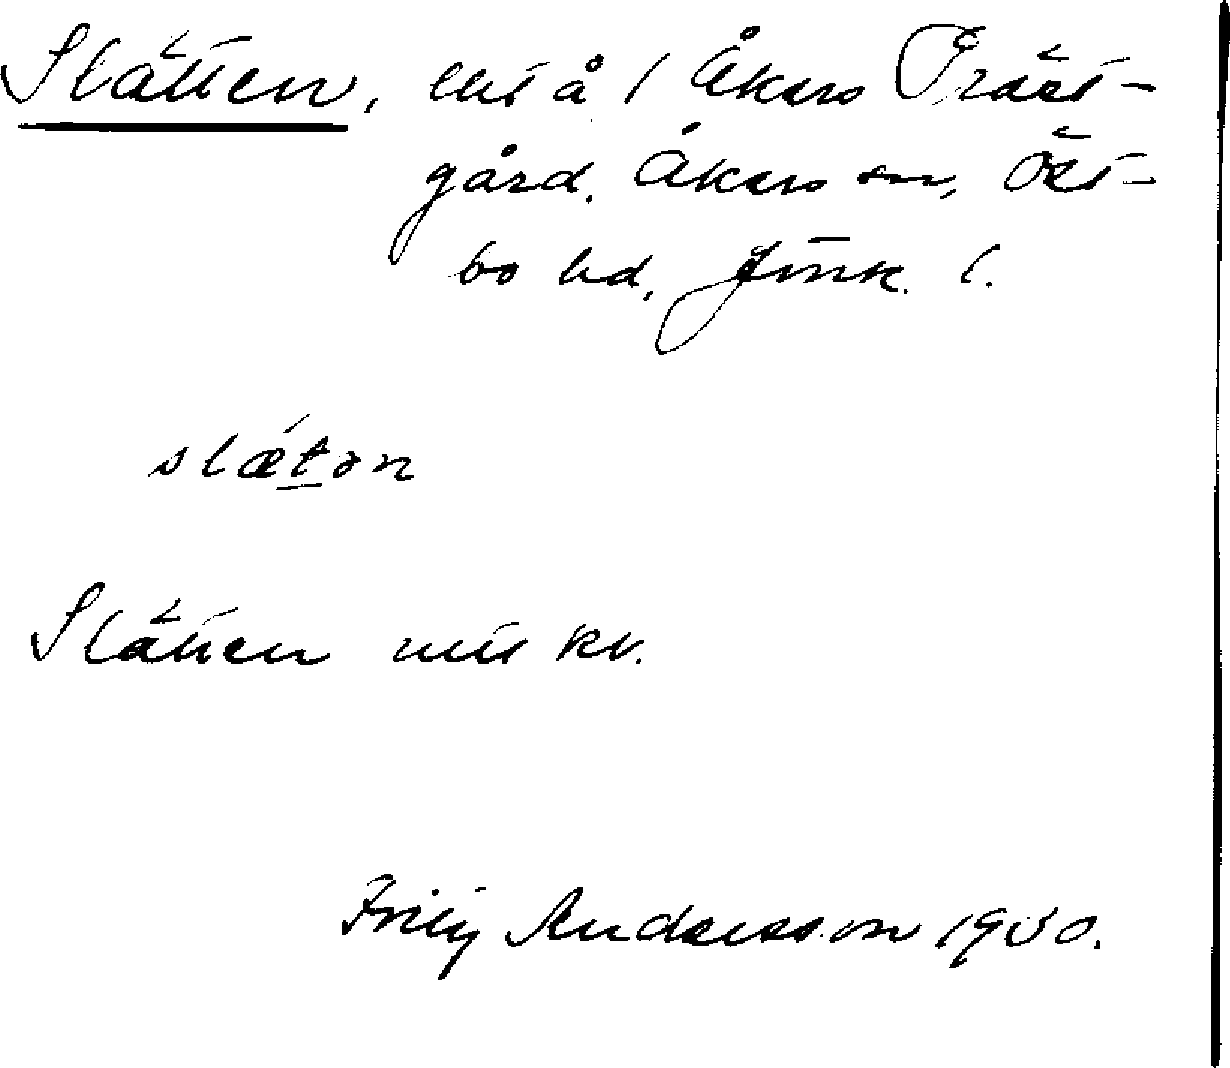 Slätten, ent å / Åkers Präst-
gård. Åkers sn, Öst-
bo hd, Jönk. l.
slǽtən
Slätten mit kv.
Fritz Andersson 1930.